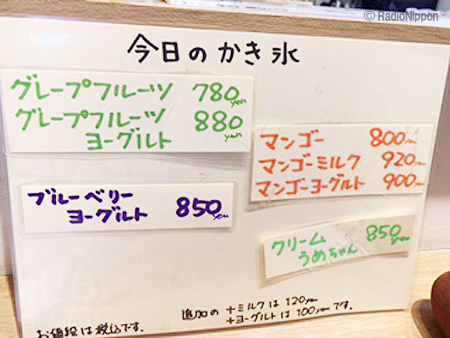 © RadioNippon
今日のかき氷
グレープフルーツ 780yen
グレープフルーツ
ヨーグルト 880yen
マンゴー 800yen
マンゴーミルク 920yen
マンゴーヨーグルト 900yen
ブルーベリー
ヨーグルト 850yen
クリーム
うめちゃん 850yen
追加の +ミルクは 120yen
+ヨーグルトは 100yen です。
お値段は税込です。